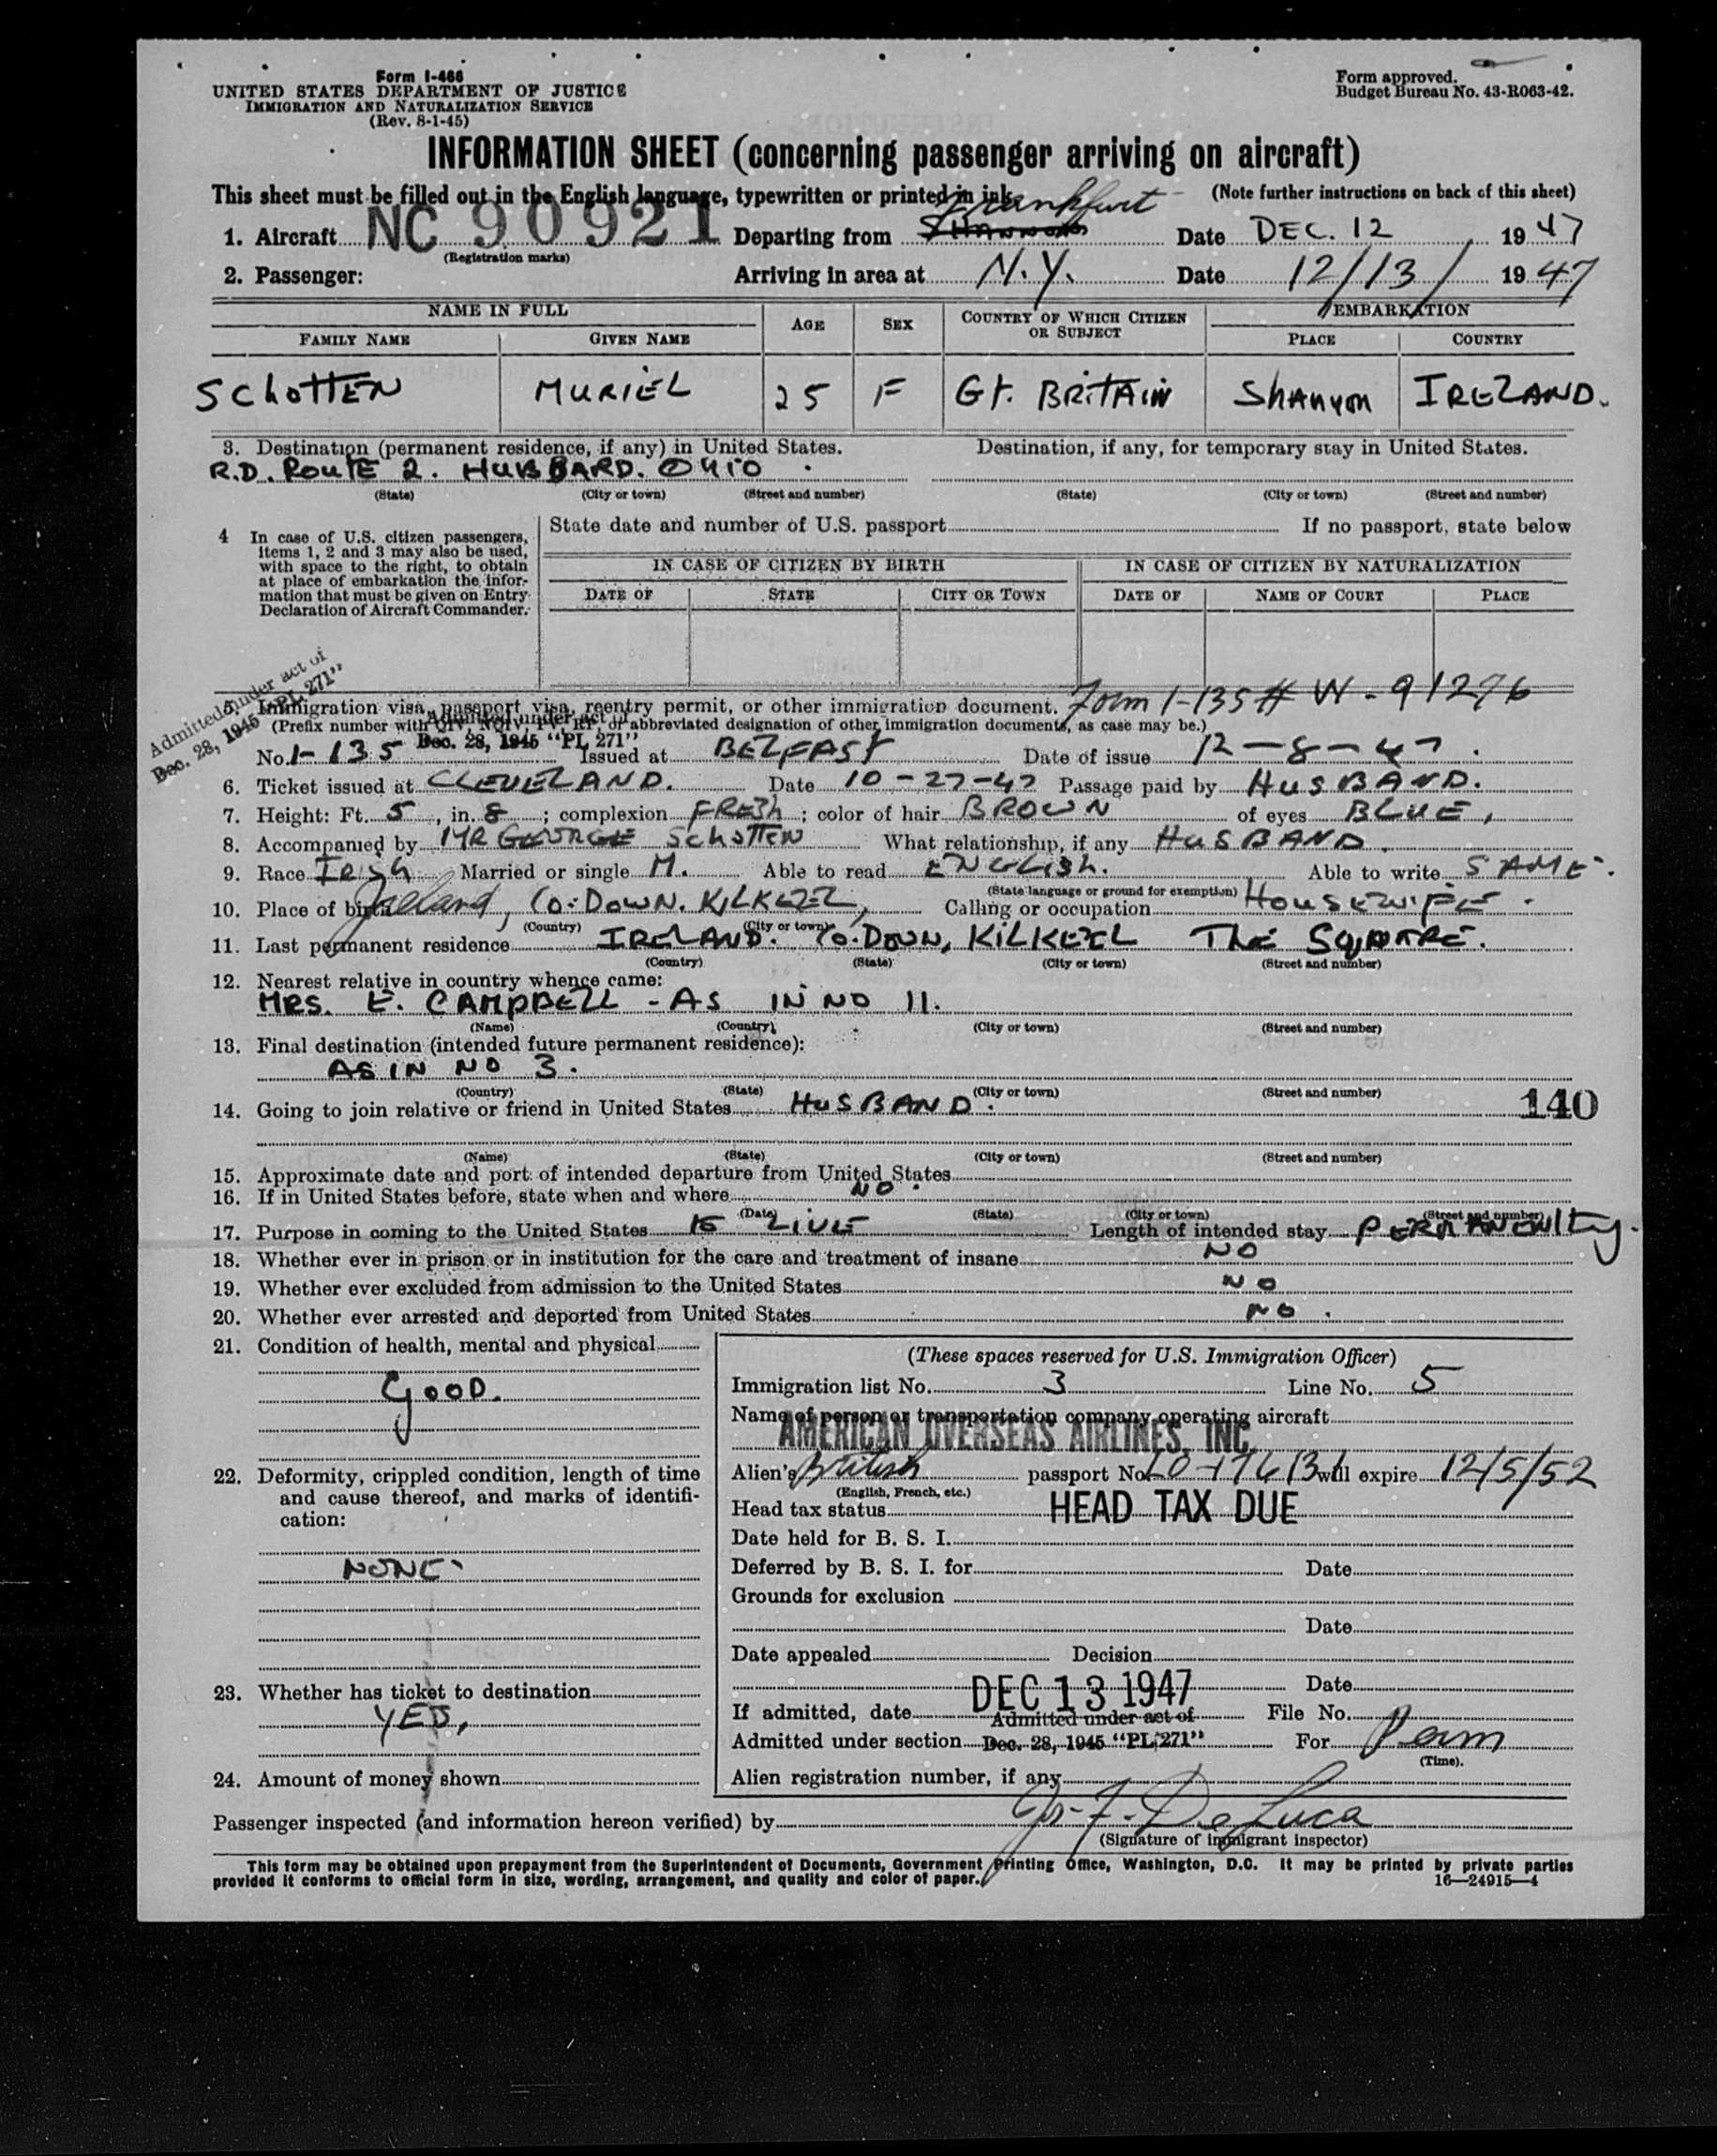 Form I-466
UNITED STATES DEPARTMENT OF JUSTICE
IMMIGRATION AND NATURALIZATION SERVICE
(Rev. 8-1-45)
Form approved.
Budget Bureau No. 43-R063-42.
INFORMATION SHEET (concerning passenger arriving on aircraft)
This sheet must be filled out in the English language, typewritten or printed in ink. (Note further instructions on back of this sheet)
Frankfurt
1. Aircraft NC 90921 Departing from SHANNON Date DEC. 12 1947
(Registration marks)
2. Passenger: Arriving in area at N.Y. Date 12/13/ 1947
NAME IN FULL AGE SEX COUNTRY OF WHICH CITIZEN OR SUBJECT EMBARKATION
FAMILY NAME GIVEN NAME PLACE COUNTRY
SCHOTTEN MURIEL 25 F Gt. BRITAIN Shannon IRELAND.
3. Destination (permanent residence, if any) in United States. Destination, if any, for temporary stay in United States.
R.D. ROUTE 2. HUBBARD. OHIO
(State) (City or town) (Street and number) (State) (City or town) (Street and number)
4 In case of U.S. citizen passengers, items 1, 2 and 3 may also be used, with space to the right, to obtain at place of embarkation the information that must be given on Entry Declaration of Aircraft Commander.
State date and number of U.S. passport If no passport, state below
IN CASE OF CITIZEN BY BIRTH IN CASE OF CITIZEN BY NATURALIZATION
DATE OF STATE CITY OR TOWN DATE OF NAME OF COURT PLACE
Admitted under act of
Dec. 28, 1945 "PL 271"
5. Immigration visa, passport visa, reentry permit, or other immigration document. Form I-135 # W-91296
(Prefix number with QIV, NQIV, PV, RP, or abbreviated designation of other immigration documents, as case may be.)
Admitted under act of
Dec. 28, 1945 "PL 271"
No. I-135 Issued at BELFAST Date of issue 12-8-47.
6. Ticket issued at CLEVELAND. Date 10-27-47 Passage paid by HUSBAND.
7. Height: Ft. 5, in. 8; complexion FRESH; color of hair BROWN of eyes BLUE,
8. Accompanied by MR GEORGE SCHOTTEN What relationship, if any HUSBAND.
9. Race IRISH Married or single M. Able to read ENGLISH. Able to write SAME.
(State language or ground for exemption)
10. Place of birth Ireland, CO. DOWN. KILKEEL, Calling or occupation HOUSEWIFE.
(Country) (City or town)
11. Last permanent residence IRELAND. CO. DOWN, KILKEEL THE SQUARE.
(Country) (State) (City or town) (Street and number)
12. Nearest relative in country whence came:
MRS. E. CAMPBELL - AS IN NO 11.
(Name) (Country) (City or town) (Street and number)
13. Final destination (intended future permanent residence):
AS IN NO 3.
(Country) (State) (City or town) (Street and number)
14. Going to join relative or friend in United States HUSBAND. 140
(Name) (State) (City or town) (Street and number)
15. Approximate date and port of intended departure from United States
16. If in United States before, state when and where NO.
(Date) (State) (City or town) (Street and number)
17. Purpose in coming to the United States TO LIVE Length of intended stay PERMANENTLY.
18. Whether ever in prison or in institution for the care and treatment of insane NO
19. Whether ever excluded from admission to the United States NO
20. Whether ever arrested and deported from United States NO.
21. Condition of health, mental and physical
GOOD.
22. Deformity, crippled condition, length of time and cause thereof, and marks of identification:
NONE
23. Whether has ticket to destination
YES,
24. Amount of money shown
(These spaces reserved for U.S. Immigration Officer)
Immigration list No. 3 Line No. 5
Name of person or transportation company operating aircraft
AMERICAN OVERSEAS AIRLINES, INC.
Alien's British passport No. will expire 12/5/52
(English, French, etc.)
Head tax status HEAD TAX DUE
Date held for B. S. I.
Deferred by B. S. I. for Date
Grounds for exclusion
Date
Date appealed Decision
Date
If admitted, date DEC 13 1947 File No.
Admitted under act of
Admitted under section Dec. 28, 1945 "PL 271" For Perm
(Time).
Alien registration number, if any
Passenger inspected (and information hereon verified) by F. De Luca
(Signature of immigrant inspector)
This form may be obtained upon prepayment from the Superintendent of Documents, Government Printing Office, Washington, D.C. It may be printed by private parties
provided it conforms to official form in size, wording, arrangement, and quality and color of paper. 16—24915—4